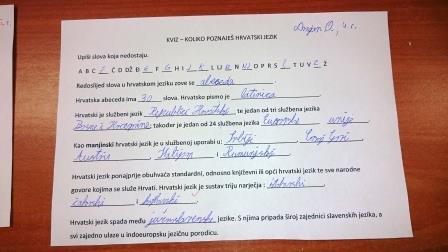 Dunja O., 4.c.
KVIZ – KOLIKO POZNAJEŠ HRVATSKI JEZIK
Upiši slova koja nedostaju.
A B C Č Ć D DŽ Đ E F G H I J K L LJ N NJ O P R S Š T U V Z Ž
Redoslijed slova u hrvatskom jeziku zove se abeceda.
Hrvatska abeceda ima 30 slova. Hrvatsko pismo je latinica.
Hrvatski je službeni jezik Republike Hrvatske te jedan od tri službena jezika
Bosne i Hercegovine također je jedan od 24 službena jezika Europske unije.
Kao manjinski hrvatski jezik je u službenoj uporabi u: Srbiji, Crnoj Gori,
Austriji, Italijom i Rumunjskoj.
Hrvatski jezik ponajprije obuhvaća standardni, odnosno književni ili opći hrvatski jezik te sve narodne
govore kojima se služe Hrvati. Hrvatski jezik je sustav triju narječja: štokavski,
čakavski i kajkavski.
Hrvatski jezik spada među južnoslavenske jezike. S njima pripada široj zajednici slavenskih jezika, a
svi zajedno ulaze u indoeuropsku jezičnu porodicu.